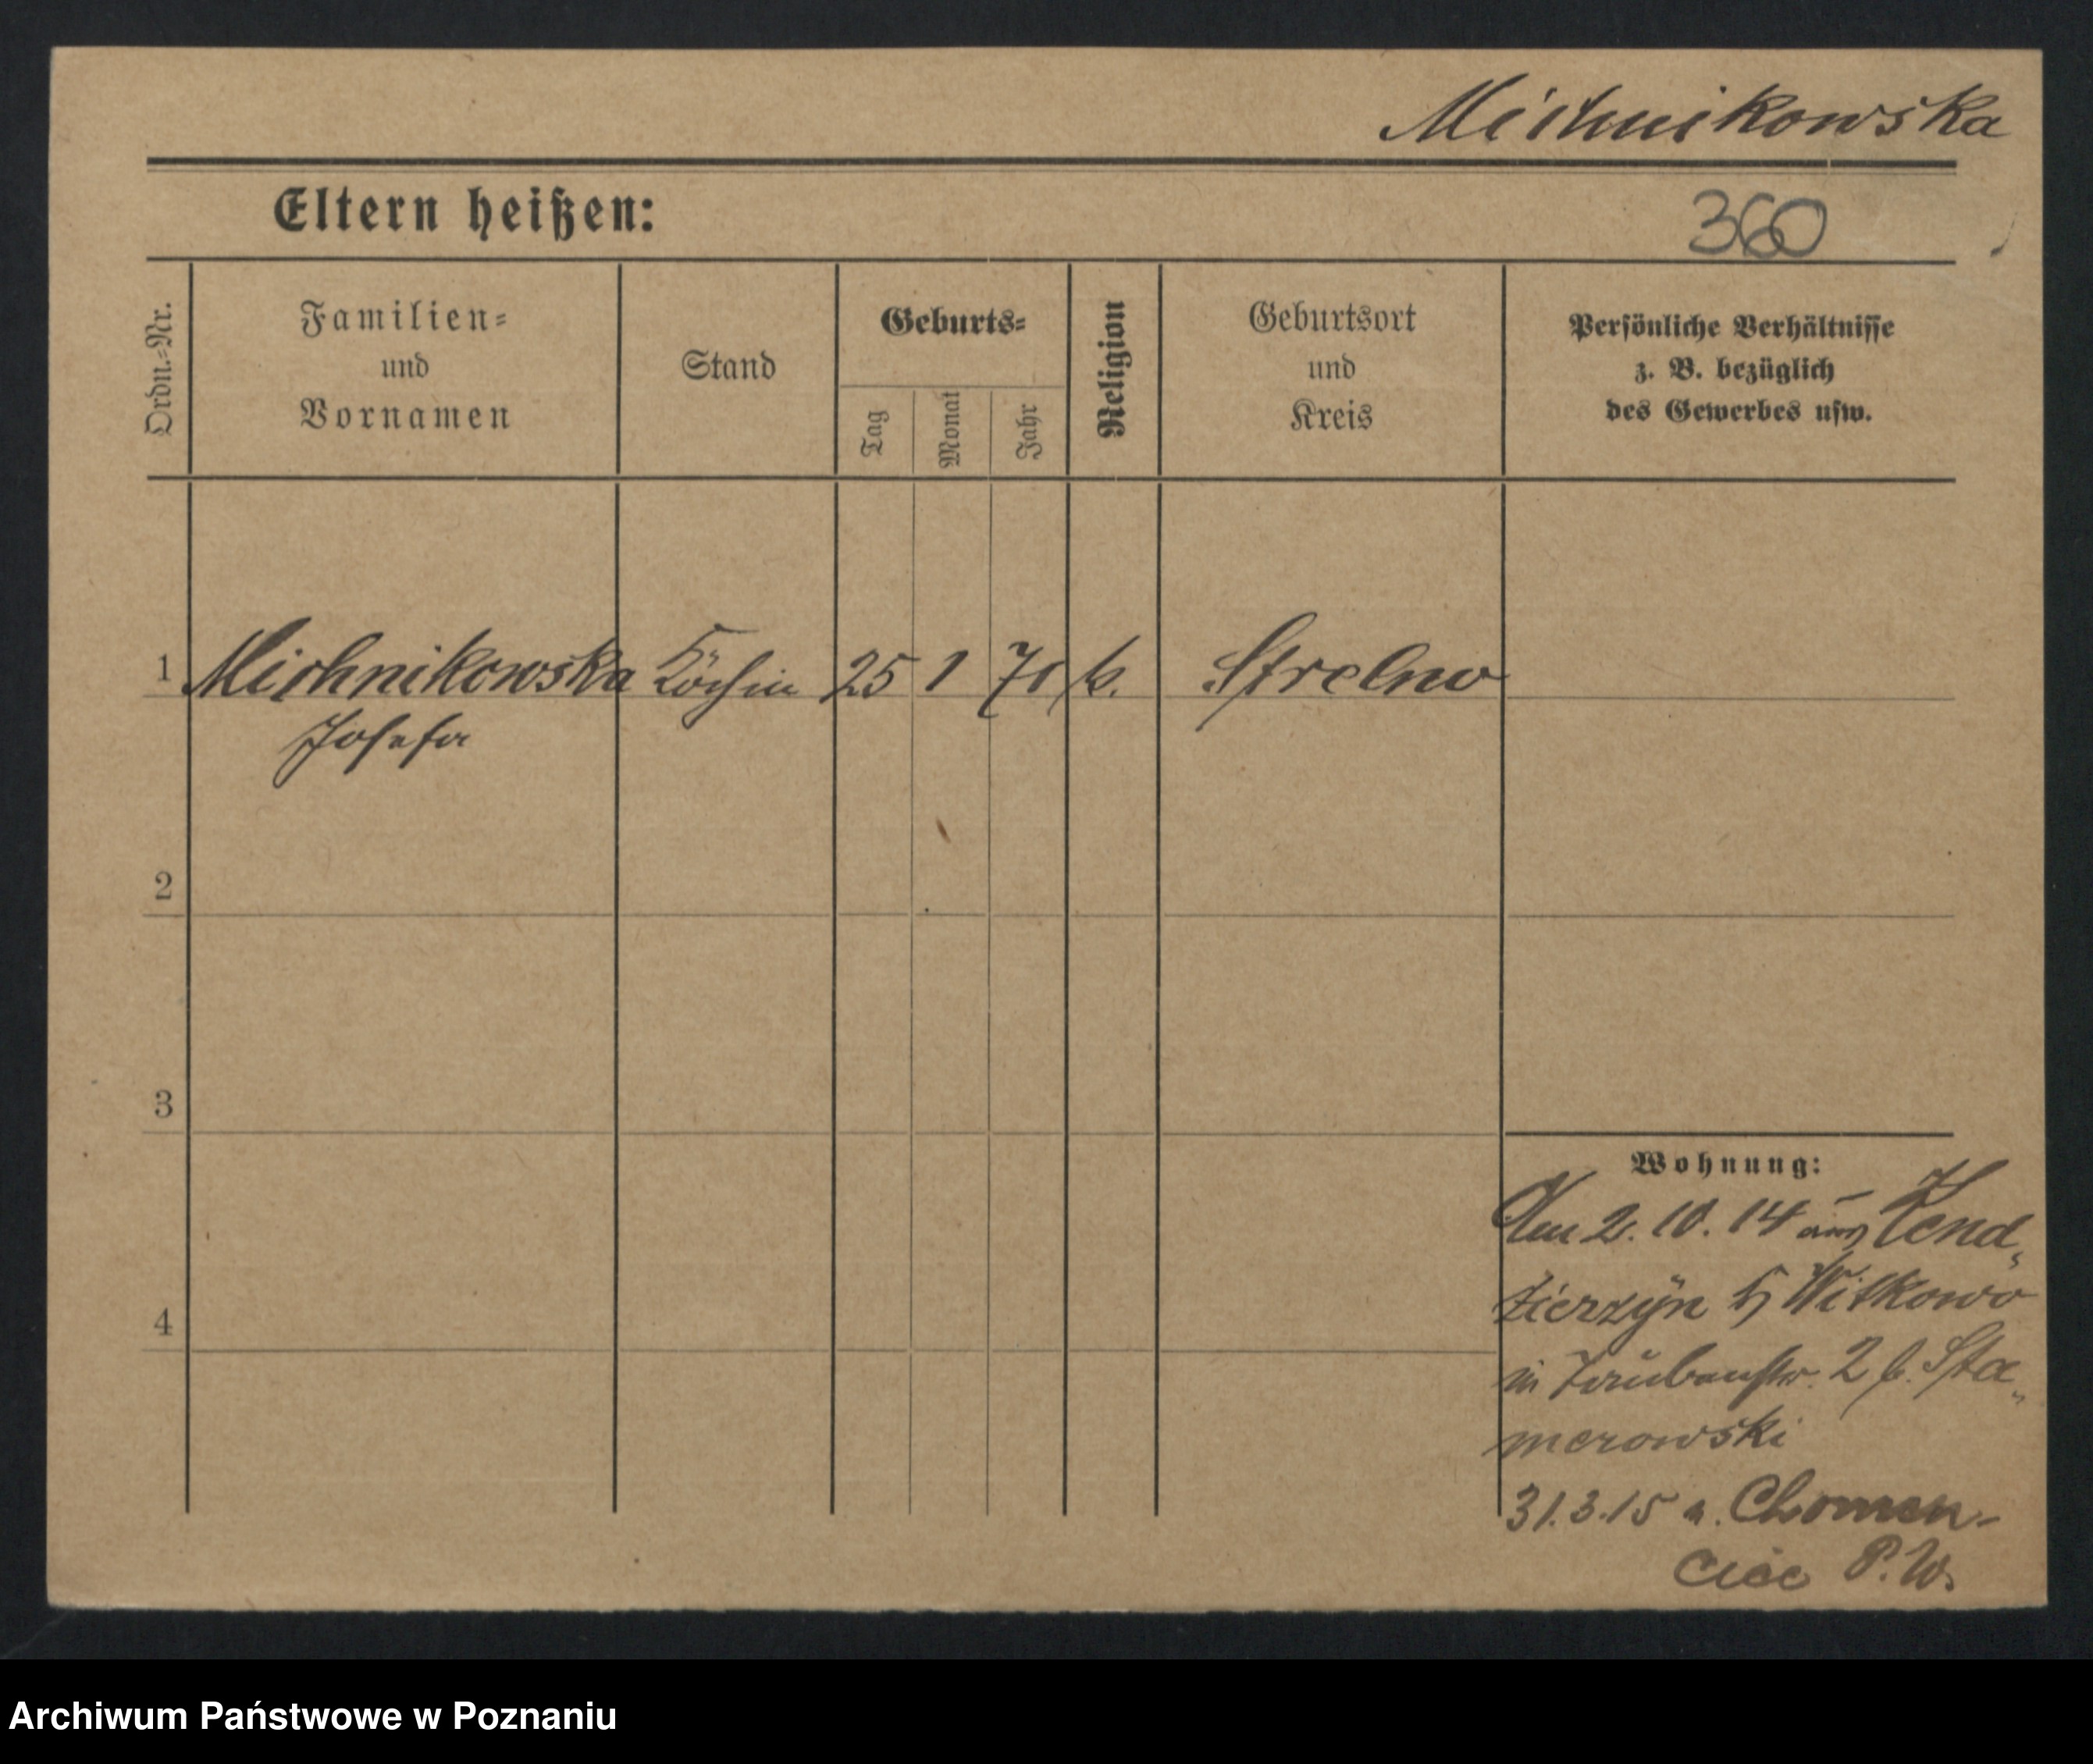 Michnikowska
Eltern heißen:
360
Ordn.=Nr.
Familien=
und
Vornamen
Stand
Geburts=
Tag
Monat
Jahr
Religion
Geburtsort
und
Kreis
Persönliche Verhältnisse
z. B. bezüglich
des Gewerbes usw.
1 Michnikowska Köchin 25 1 70 k. Strelno
Josefa
2
3
4
Wohnung:
Am 2. 10. 14 aus Kend„
zierzyn Witkowo
in Taubenstr. 2 b. Sta„
merowski
31.3.15 n. Chomen-
cice P.W.
Archiwum Państwowe w Poznaniu